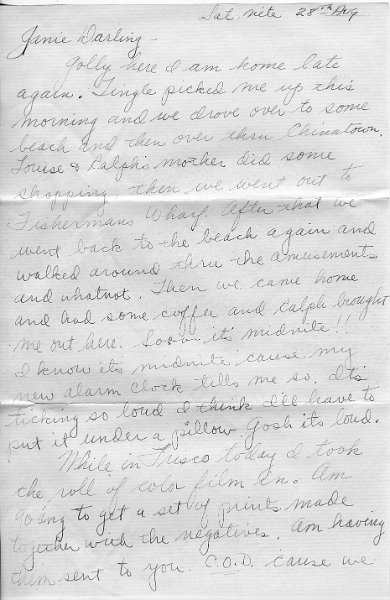 Sat nite 28th Aug
Janie Darling -
Golly here I am home late
again. Tingle picked me up this
morning and we drove over to some
beach and then over thru Chinatown.
Louise & Ralph's mother did some
shopping, then we went out to
Fishermans Wharf. After that we
went back to the beach again and
walked around thru the amusements
and whatnot. Then we came home
and had some coffee and Ralph brought
me out here. Sooo- it's midnite!!
I know its midnite cause my
new alarm clock tells me so. Its
ticking so loud I think I'll have to
put it under a pillow. Gosh its loud.
While in Frisco today I took
the roll of color film in. Am
going to get a set of prints made
together with the negatives. Am having
them sent to you C.O.D. cause we